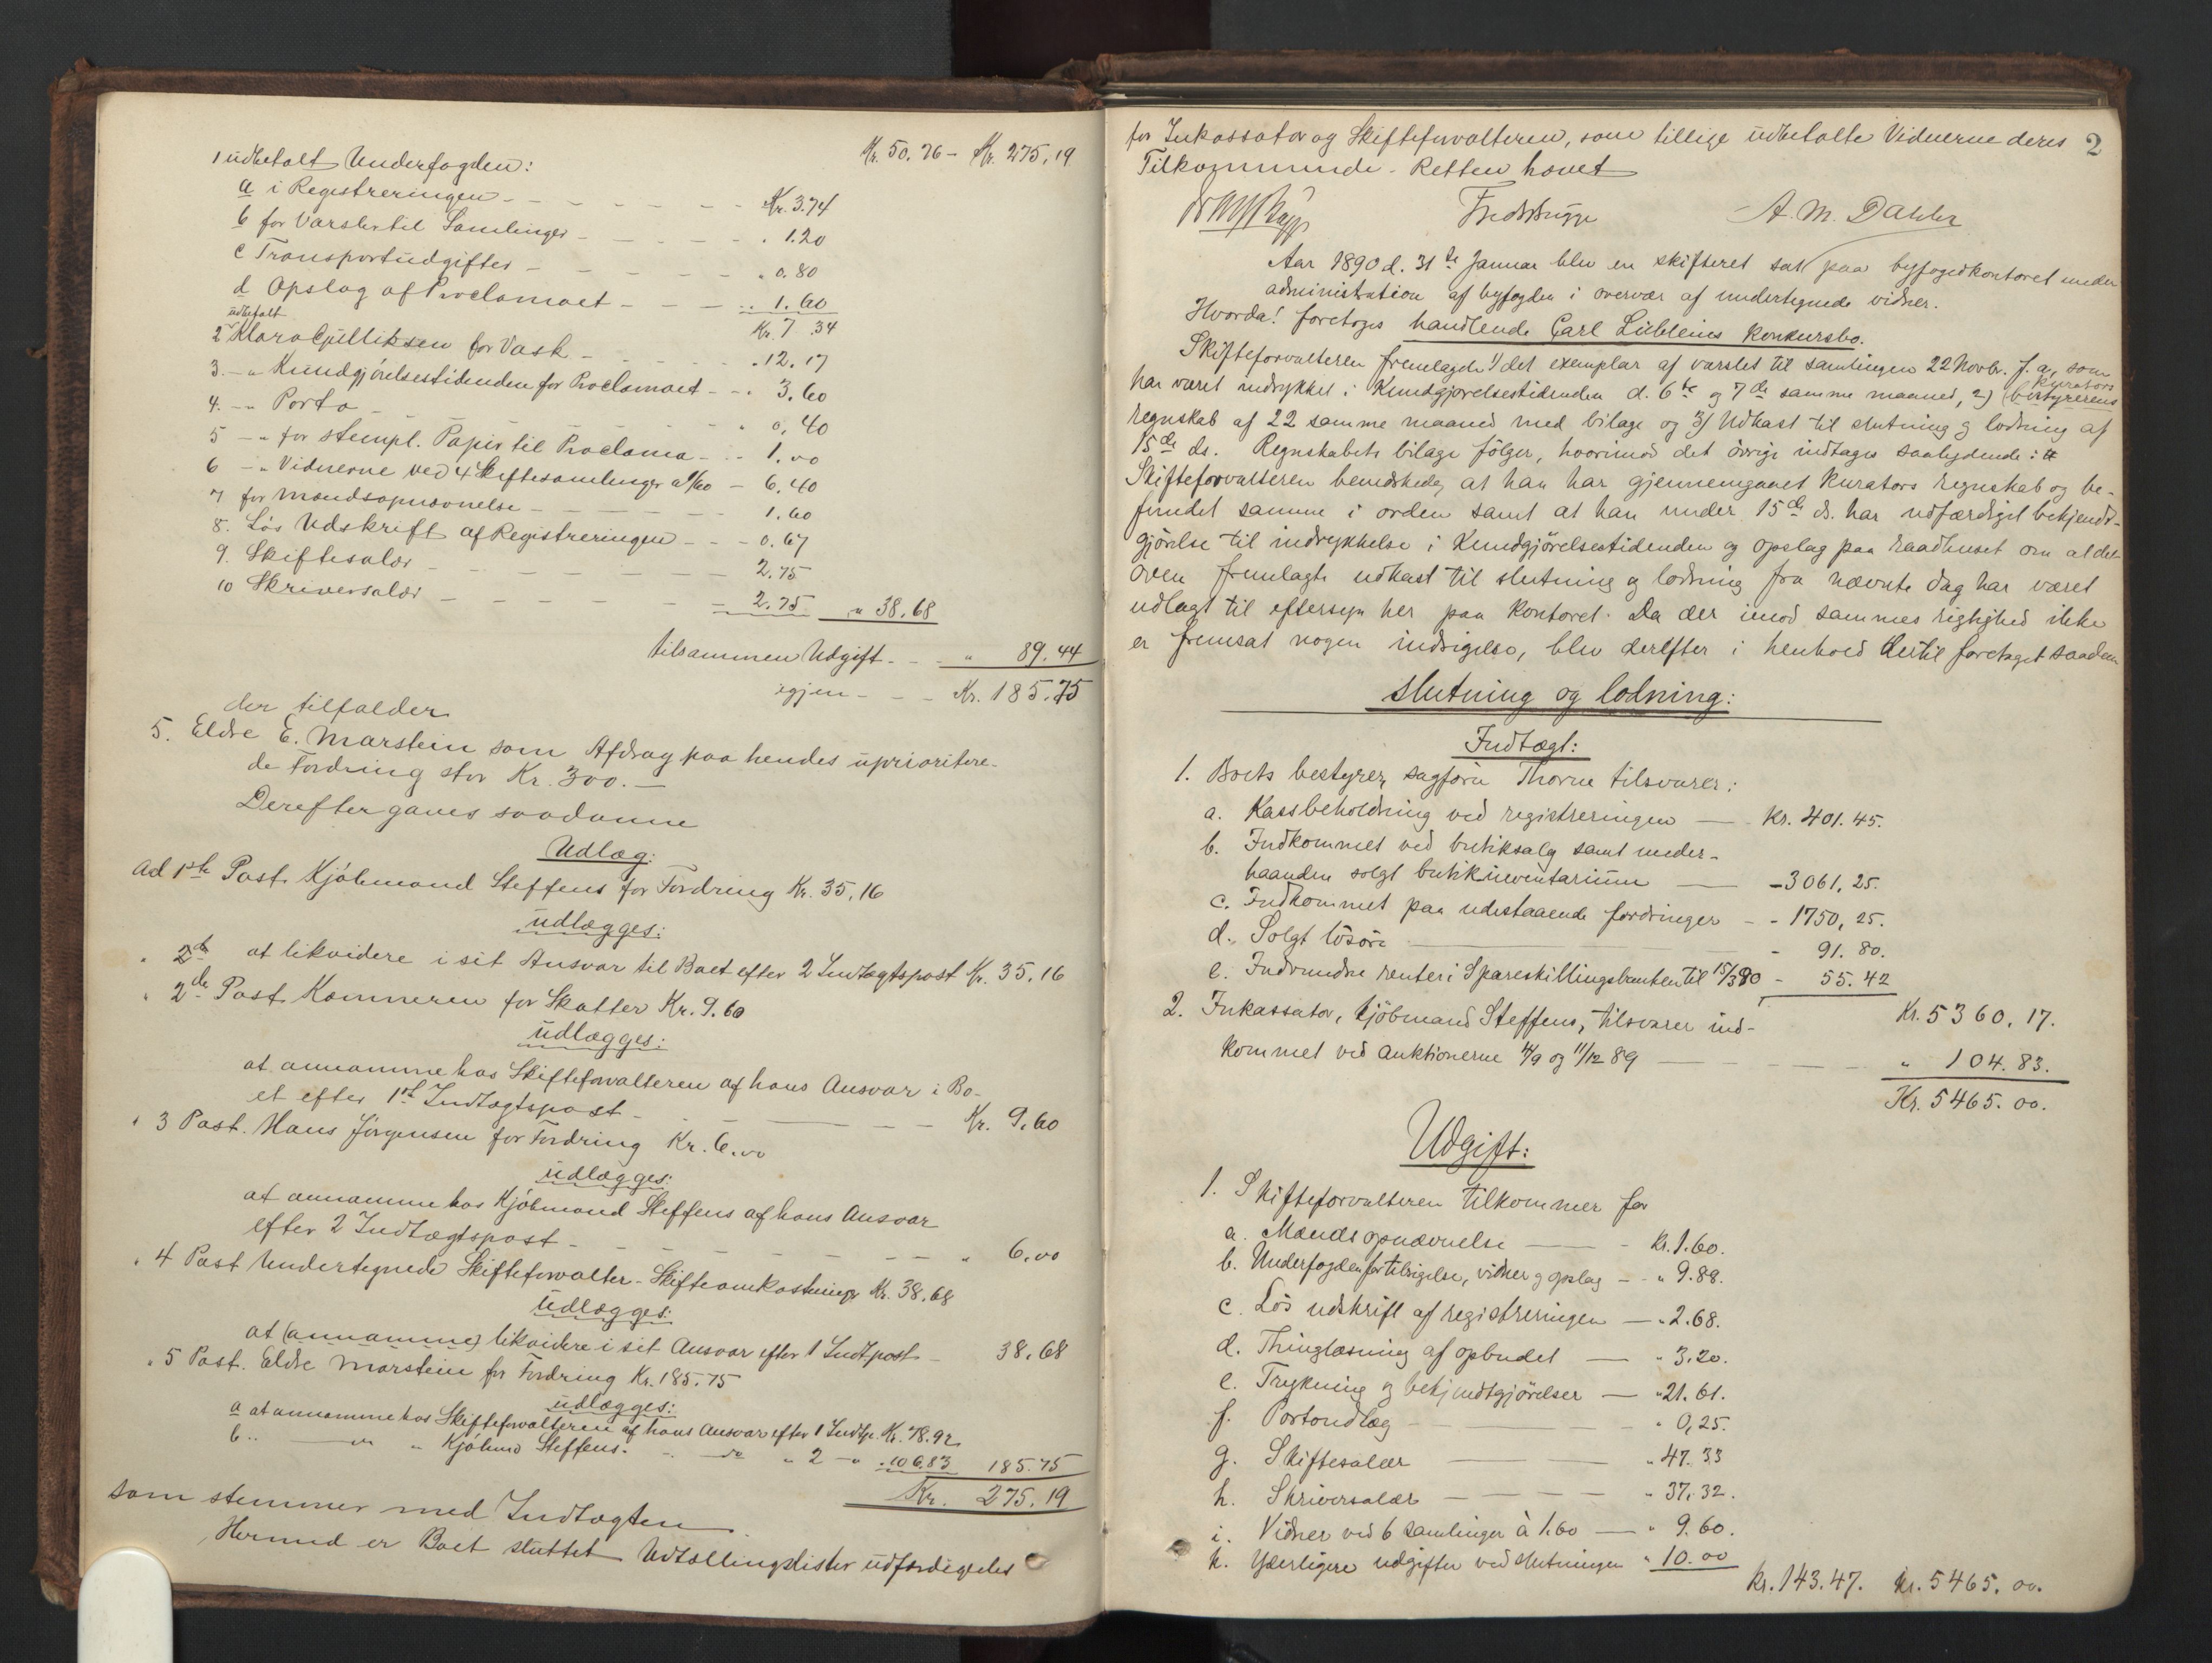 Kr. 50.76 – Kr. 275.19
1 udbetalt Underfogden:
a i Registreringen – – – – – Kr. 3.74
b for Varsler til Samlinger – – – – " 1.20
c Transportudgifter – – – – – " 0.80
d Opslag af Proclamaet – – – " 1.60
Kr. 7.34
udbetalt
2 Klara Gulliksen for Vask – – – – " 12.17
3. – " Kundgjørelsestidenden for Proclamaet – – " 3.60
4. – " Porto – – – – – " 0,40
5 – " for stempl. Papir til Proclama – – 1.00
6 – " Vidnerne ved 4 Skiftesamlinger a 1/60 – 6.40
7 for Mandsopnævnelse – – – – – 1.60
8. Løs Udskrift af Registreringen – – – 0.67
9. Skiftesalær – – – – – 2.75
10 Skriversalær – – – – – 2.75 " 38.68
tilsammen Udgift – – " 89.44
igjen – – – Kr. 185.75
der tilfalder
5. Eldre E. Marstein som Afdrag paa hendes uprioritere-
de Fordring stor Kr. 300. –
Derefter gaves saadanne
Udlæg:
Ad 1ste Post. Kjøbmand Steffens for Fordring Kr. 35.16
udlægges:
at likvidere i sit Ansvar til Boet efter 2 Indtægtspost Kr. 35.16
" 2de Post Kæmneren for Skatter Kr. 9.60
udlægges:
at annamme hos Skifteforvalteren af hans Ansvar i Bo-
et efter 1ste Indtægtspost – – – – – Kr. 9.60
" 3 Post. Hans Jørgensen for Fordring Kr. 6.00
udlægges:
at annamme hos Kjøbmand Steffens af hans Ansvar
efter 2 Indtægtspost – – – – – " 6.00
" 4 Post Undertegnede Skifteforvalter – Skifteomkostninger Kr. 38.68
udlægges:
at (annamme) likvidere i sit Ansvar efter 1 Indt.post – 38.68
" 5 Post. Eldre Marstein for Fordring Kr. 185.75
udlægges:
a at annamme hos Skifteforvalteren af hans Ansvar efter 1 Indtp. Kr. 78.92
b " – " – " Kjøbmd Steffens " – " – " 2 – " 106.83 185.75
Kr. 275.19
som stemmer med Indtægten
Hermed er Boet sluttet. Udtællingslister udfærdigedes
2
for Inkassator og Skifteforvalteren, som tillige udbetalte Vidnerne deres
Tilkommende. Retten hævet
Fredr Bugge A. M. Dahler
Aar 1890 d. 31te Januar blev en skifteret sat paa byfogedkontoret under
administration af byfogden i overvær af undertegnede vidner.
Hvorda! foretoges handlende Carl Lübleins konkursbo.
Skifteforvalteren fremlagde 1) det exemplar af varslet til samlingen 22 Novbr. f. a., som
har været indrykket i Kundgjørelsestidenden d. 6te og 7de samme maaned, 2) (bestyrerens) kurators
regnskab af 22 samme maaned med bilage og 3) Udkast til slutning og lodning af
15de ds. Regnskabets bilage følger, hvorimod det øvrige indtages saalydende: #
Skifteforvalteren bemærkede, at han har gjennemgaaet kurators regnskab og be-
fundet samme i orden samt at han under 15de ds. har udfærdiget bekjendt-
gjørelse til indrykkelse i Kundgjørelsestidenden og opslag paa raadhuset om at det
oven fremlagte udkast til slutning og lodning fra nævnte dag har været
udlagt til eftersyn her paa kontoret. Da der imod sammes rigtighed ikke
er fremsat nogen indsigelse, blev derefter i henhold dertil foretaget saadan
slutning og lodning:
Indtægt:
1. Boets bestyrer, sagfører Thorne tilsvarer:
a. Kassbeholdning ved registreringen – – Kr. 401.45.
b. Indkommet ved butiksalg samt under-
haanden solgt butikinventarium – – 3061,25.
c. Indkommet paa udestaaende fordringer – – 1750,25.
d. Solgt løsøre – – 91.80.
e. Indvundne renter i Spareskillingsbanken til 15/3 90 – 55.42
Kr. 5360.17.
2. Inkassator, kjøbmand Steffens, tilsvarer ind-
kommet ved auktionerne 4/9 og 11/12 89 – – – – " 104.83.
Kr. 5465.00.
Udgift:
1. Skifteforvalteren tilkommer for
a. Mændsopnævnelse – – Kr. 1.60.
b. Underfogden for tilsigelse, vidner og opslag – – " 9.88.
c. Løs udskrift af registreringen – " 2.68.
d. Thinglæsning af opbudet – " 3.20.
e. Trykning og bekjendtgjørelser – " 21.61.
f. Portoudlæg – – " 0,25.
g. Skiftesalær – – " 47.33
h. Skriversalær – – – " 37.32.
i. Vidner ved 6 samlinger à 1.60 – " 9.60.
k. Yderligere udgifter ved slutningen " 10.00
Kr. 143.47. Kr. 5465.00.